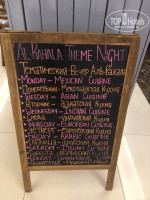 TOP HOTELS
AL KAHALA THEME NIGHT
Тематический Вечер Аль-Кахала
MONDAY - MEXICAN CUISINE
Понедельник - Мексиканская Кухня
TUESDAY - ASIAN CUISINE
Вторник - Азиатская Кухня
WEDNESDAY - INDIAN CUISINE
Среда - Индийская Кухня
THURSDAY - EUROPEAN CUISINE
Четверг - Европейская Кухня
FRIDAY - ARABIC CUISINE
Пятница - Арабская Кухня
SATURDAY - ITALIAN CUISINE
Суббота - Итальянская Кухня
SUNDAY -